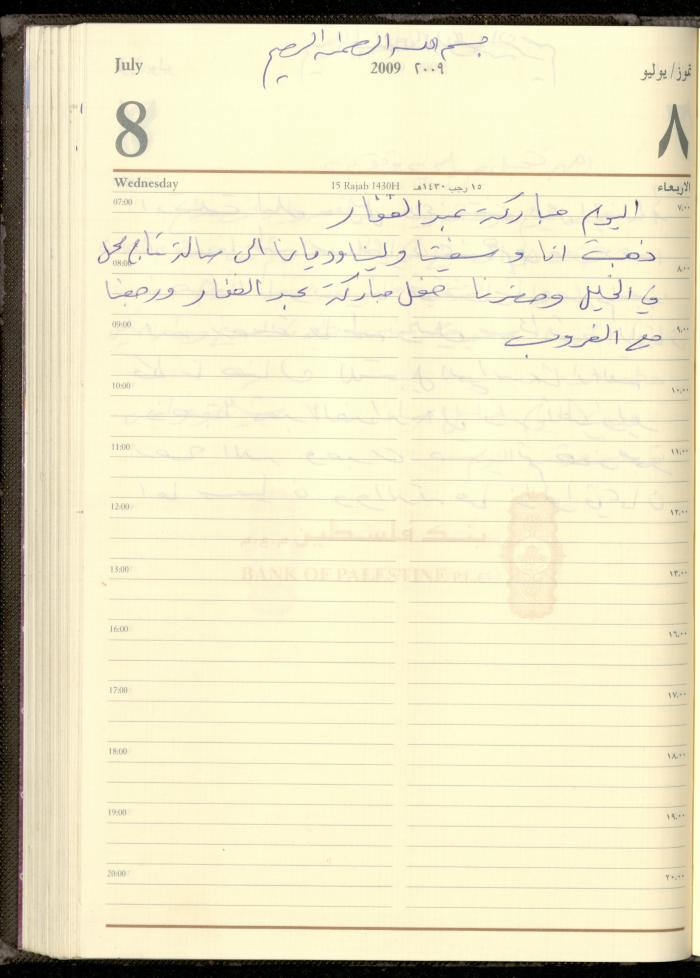 بسم الله الرحمن الرحيم
July 2009 ٢٠٠٩ تموز/ يوليو
8 ٨
Wednesday 15 Rajab 1430H ١٥ رجب ١٤٣٠هـ الاربعاء
07:00 ٧,٠٠
اليوم مباركة عبد الغفار
ذهبت انا و ولينا وديانا الى صالة
08:00 ٨,٠٠
في الخليل وحضرنا حفل مباركة عبد الغفار ورجعنا
09:00 ٩,٠٠
مع الغروب
10:00 ١٠,٠٠
11:00 ١١,٠٠
12:00 ١٢,٠٠
BANK OF PALESTINE PLC
13:00 ١٣,٠٠
16:00 ١٦,٠٠
17:00 ١٧,٠٠
18:00 ١٨,٠٠
19:00 ١٩,٠٠
20:00 ٢٠,٠٠